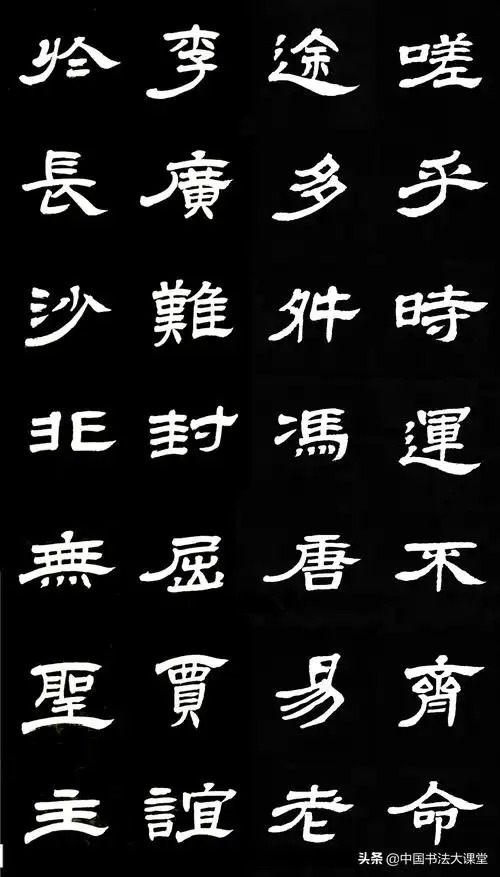 嗟乎時運不齊命
途多舛馮唐易老
李廣難封屈賈誼
於長沙非無聖主
头条 @中国书法大课堂